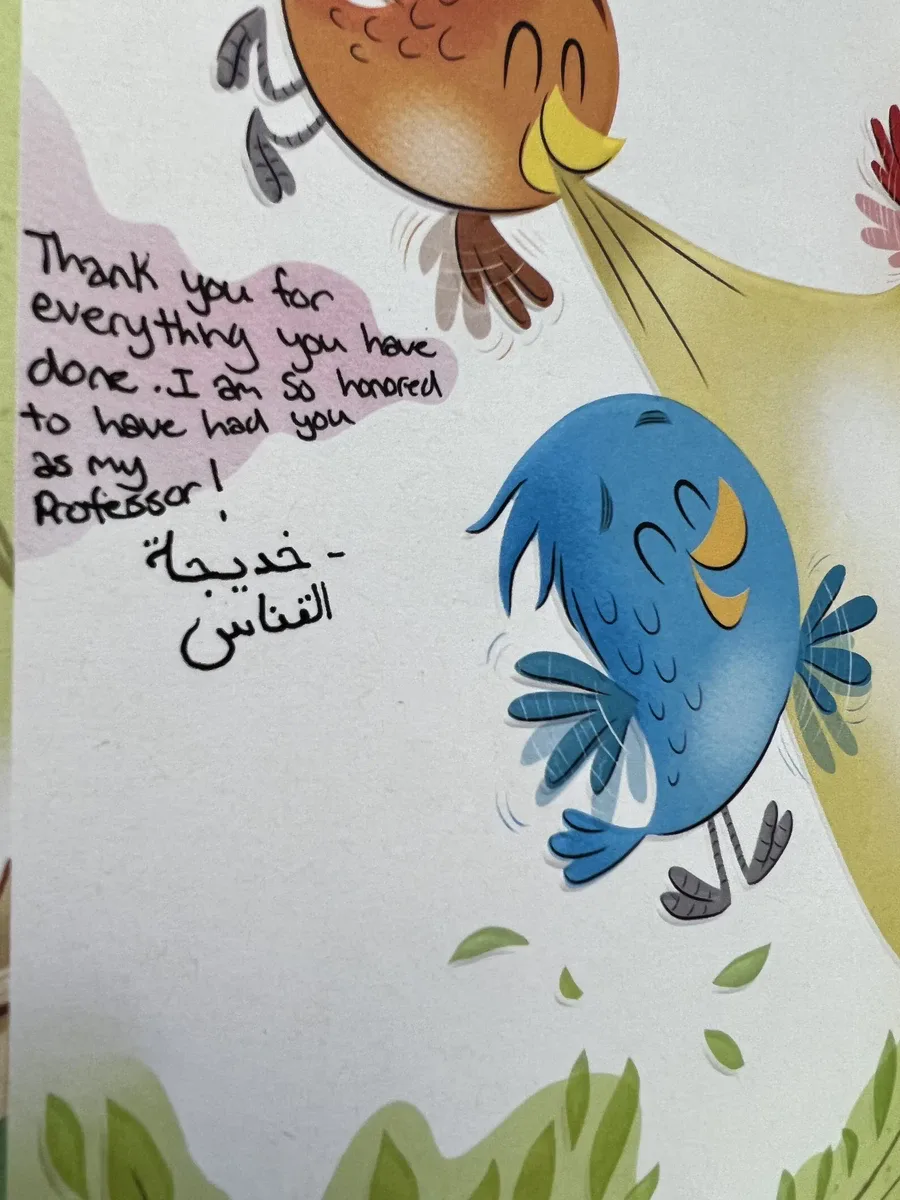 Thank you for
everything you have
done. I am so honored
to have had you
as my
Professor!
- خديجة
القناس